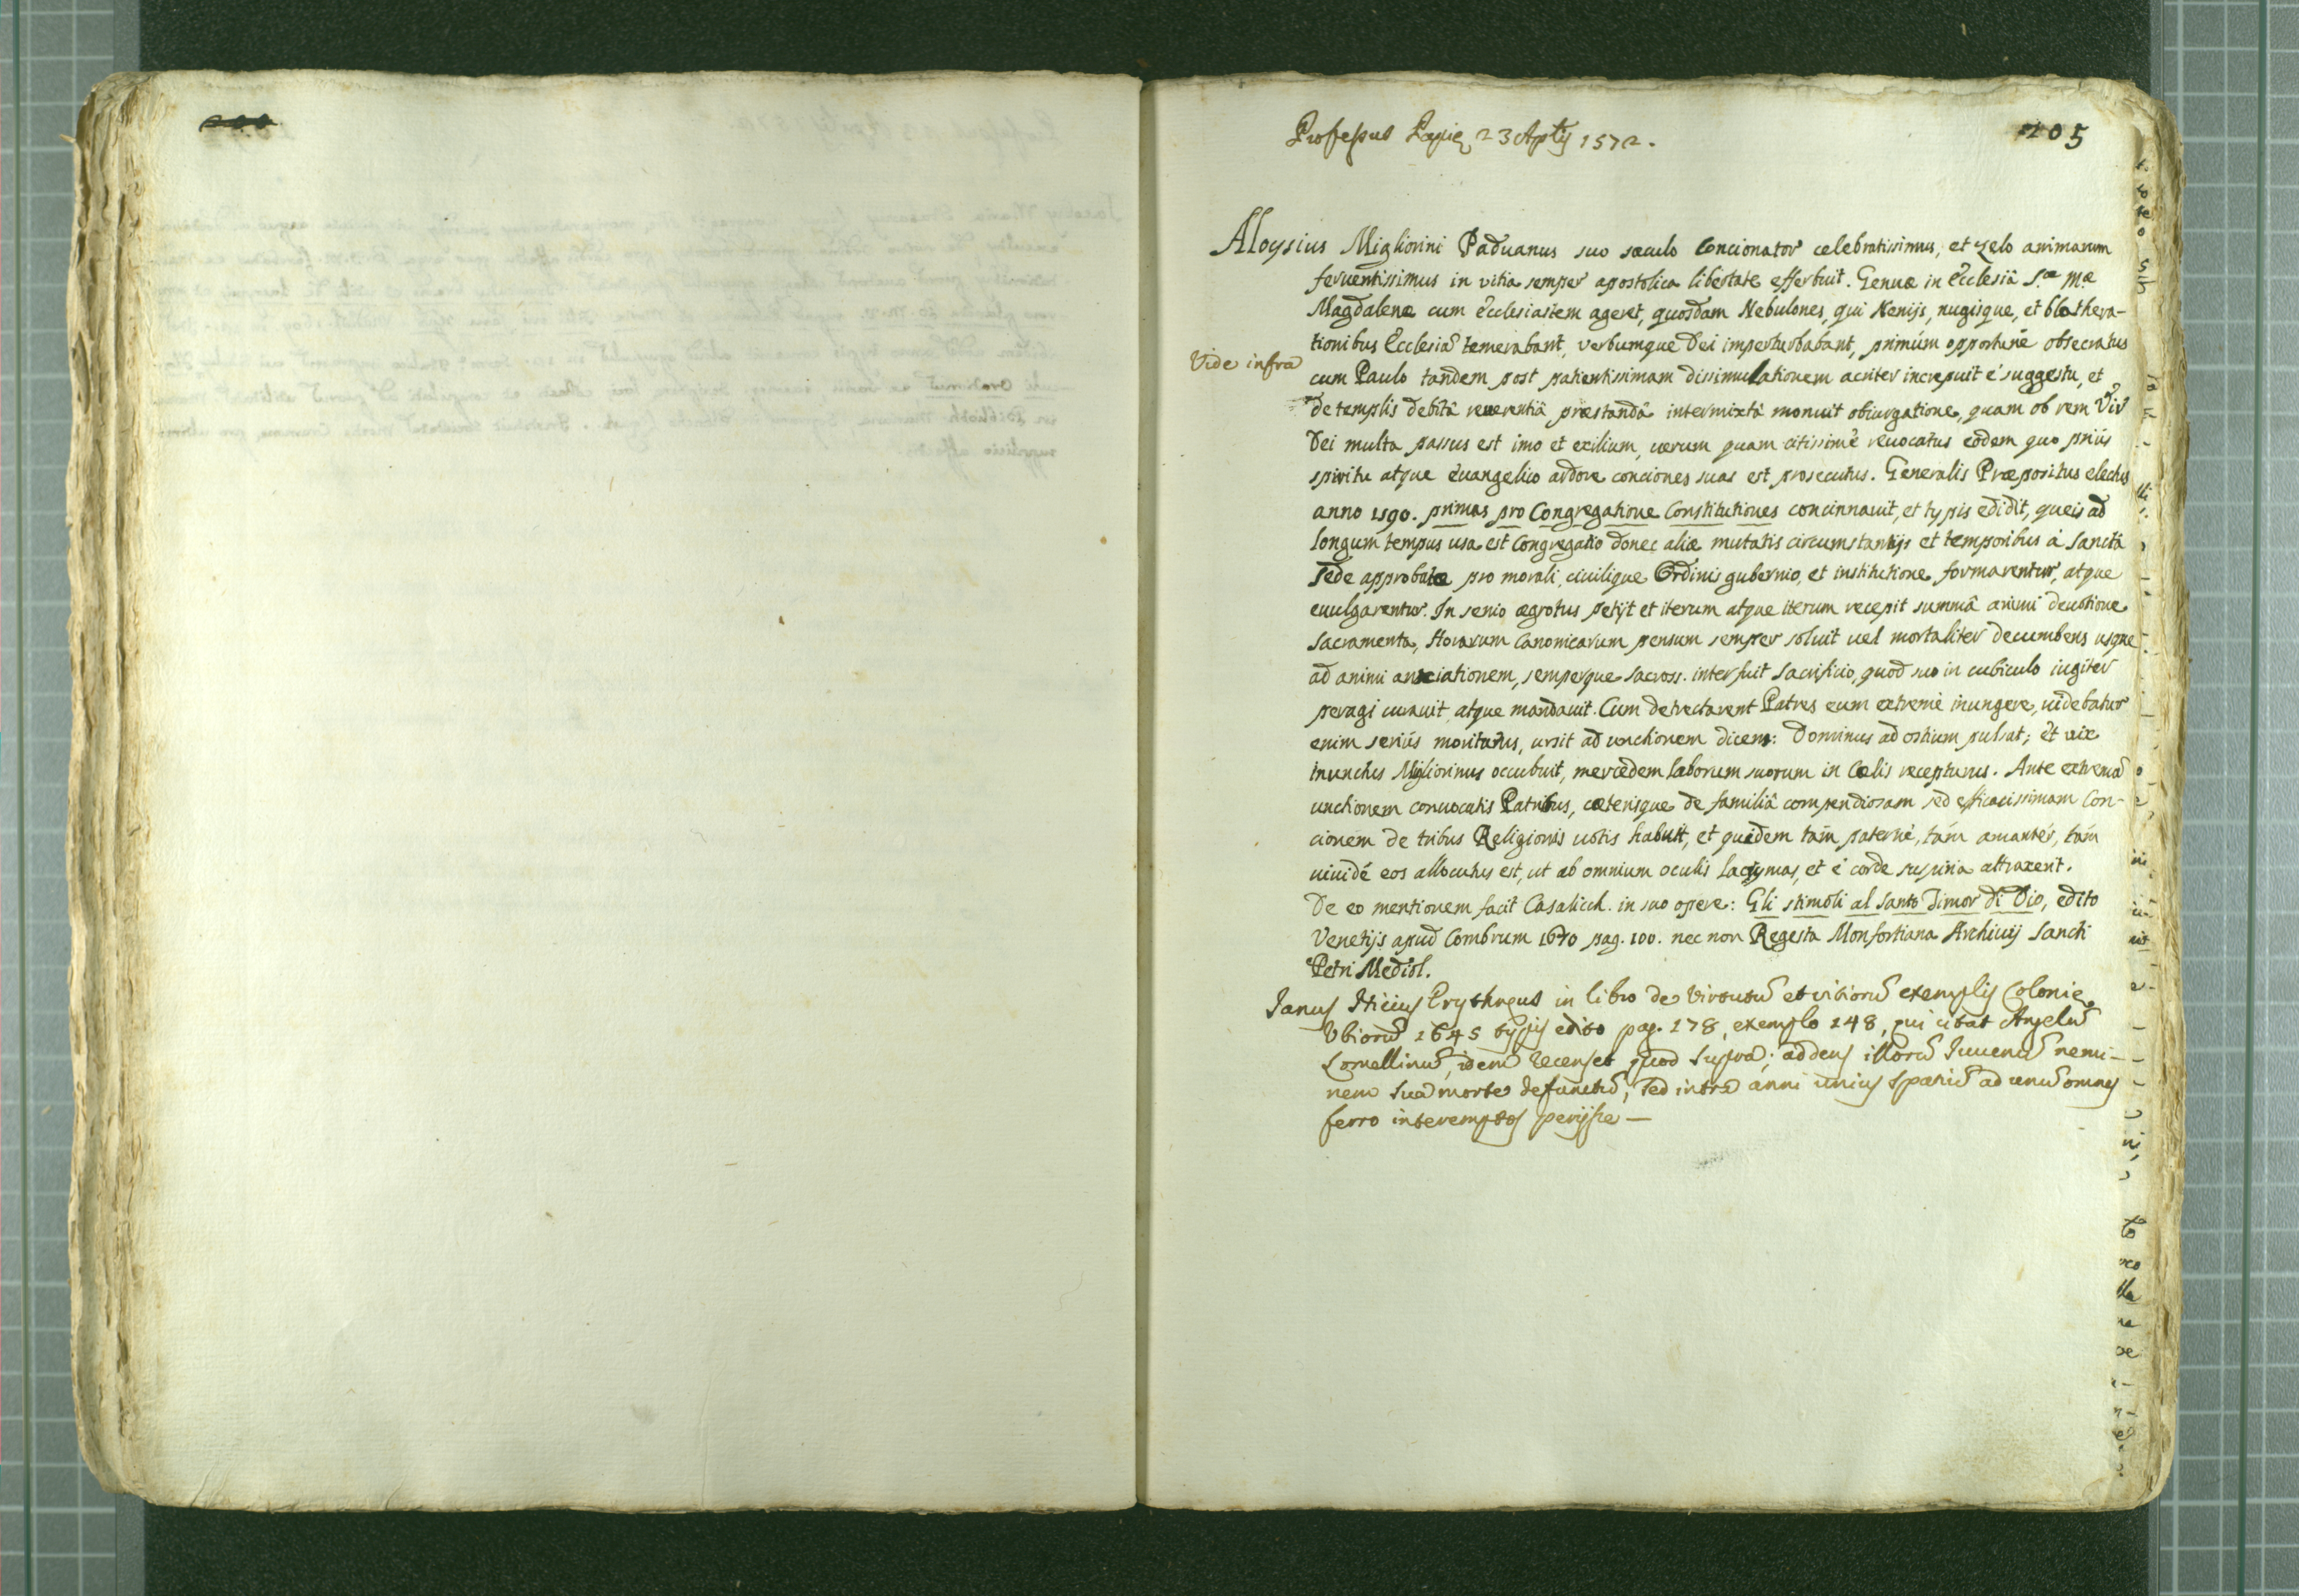 205
Professus Papię 23 Aprīlis 1572.
Aloysius Migliorini Paduanus suo sæculo Concionator celebratissimus, et zelo animarum
feruentissimus in vitia semper apostolica libertate efferbuit. Genuæ in Ecclesiâ S.æ Mæ
Magdalenæ cum ecclesiastem ageret, quosdam Nebulones, qui Nenijs, nugisque, et blathera-
tionibus Ecclesiā temerabant, verbumque Dei imperturbabant, primúm opportunè obsecratus
Vide infra
cum Paulo tandem post patientissimam dissimulationem acriter increpuit é suggestu, et
de templis debitâ reuerentiâ præstandâ intermixtâ monuit obiurgatione, quam ob rem Vir
Dei multa passus est imo et exilium, uerum quam citissimè reuocatus eodem quo priùs
spiritu atque euangelico ardore conciones suas est prosecutus. Generalis Præpositus electus
anno 1590. primas pro Congregatione Constitutiones concinnauit, et typis edidit, queis ad
longum tempus usa est Congregatio donec aliæ mutatis circumstantijs et temporibus à sanctâ
Sede approbatæ pro morali, ciuilique Ordinis gubernio, et institutione formarentur, atque
euulgarentur. In senio ægrotus petijt et iterum atque iterum recepit summâ animi deuotione
sacramenta, Horarum Canonicarum pensum semper soluit uel mortaliter decumbens usque
ad animi anxiationem, semperque sacross. interfuit sacrificio, quod suo in cubiculo iugiter
peragi curauit, atque mandauit. Cum detrectarent Patres eum extremè inungere, uidebatur
enim seriùs moriturus, ursit ad unctionem dicens: Dominus ad ostium pulsat; et uix
inunctus Migliorinus occubuit, mercedem laborum suorum in Cælis recepturus. Ante extremā
unctionem conuocatis Patribus, cæterisque de familiâ compendiosam sed efficacissimam Con-
cionem de tribus Religionis uotis habuit, et quidem tám paternè, tám amantèr, tám
uiuidè eos allocutus est, ut ab omnium oculis lacrymas, et è corde suspiria attraxerit.
De eo mentionem facit Casalicch. in suo opere: Gli stimoli al santo Timor di Dio, edito
Venetijs apud Combrum 1670 pag. 100. nec non Regesta Monfortiana Archiuij Sancti
Petri Mediol.
Ianus Nicius Erythręus in libro de Virtutū et vitiorū exemplis Colonię
Vbiorū 1645 typis edito pag. 178, exemplo 148, qui citat Angelū
Lomellinū, idem recenset quod supra; addens illorū Iuuenū nemi-
nem sua morte defunctū, sed intra anni unius spatiū ad unū omnes
ferro interemptos perijsse —